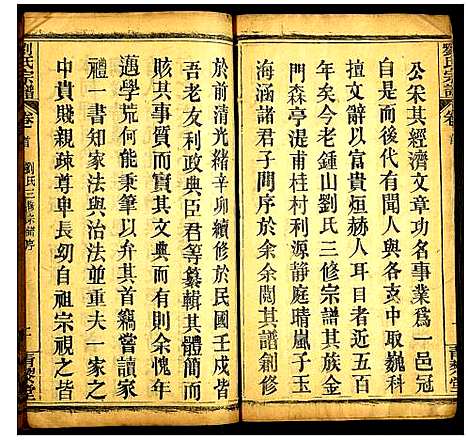 劉氏宗譜
卷首
公采其經濟文章功名事業爲一邑冠
首而後代有聞人與各史中取巍科
擅文辭以富貴烜赫人耳目者近五百
年矣今老鍾山劉氏三修宗譜其族金
門森亭湜甫桂村利源靜庭晴嵐子玉
海涵諸君子問序於余余閱其譜創修
於前清光緒辛卯續修於民國壬戍皆
吾老友利政典臣君等纂輯其體簡而
賅其事質而不俚其文典而有則余愧年
邁學荒何能秉筆以弁其首竊嘗讀家
禮一書知家法與治法並重夫一家之
中貴賤親疎尊卑長幼自祖宗視之皆
劉氏宗譜
卷首
劉氏三修宗譜序
二
青藜堂